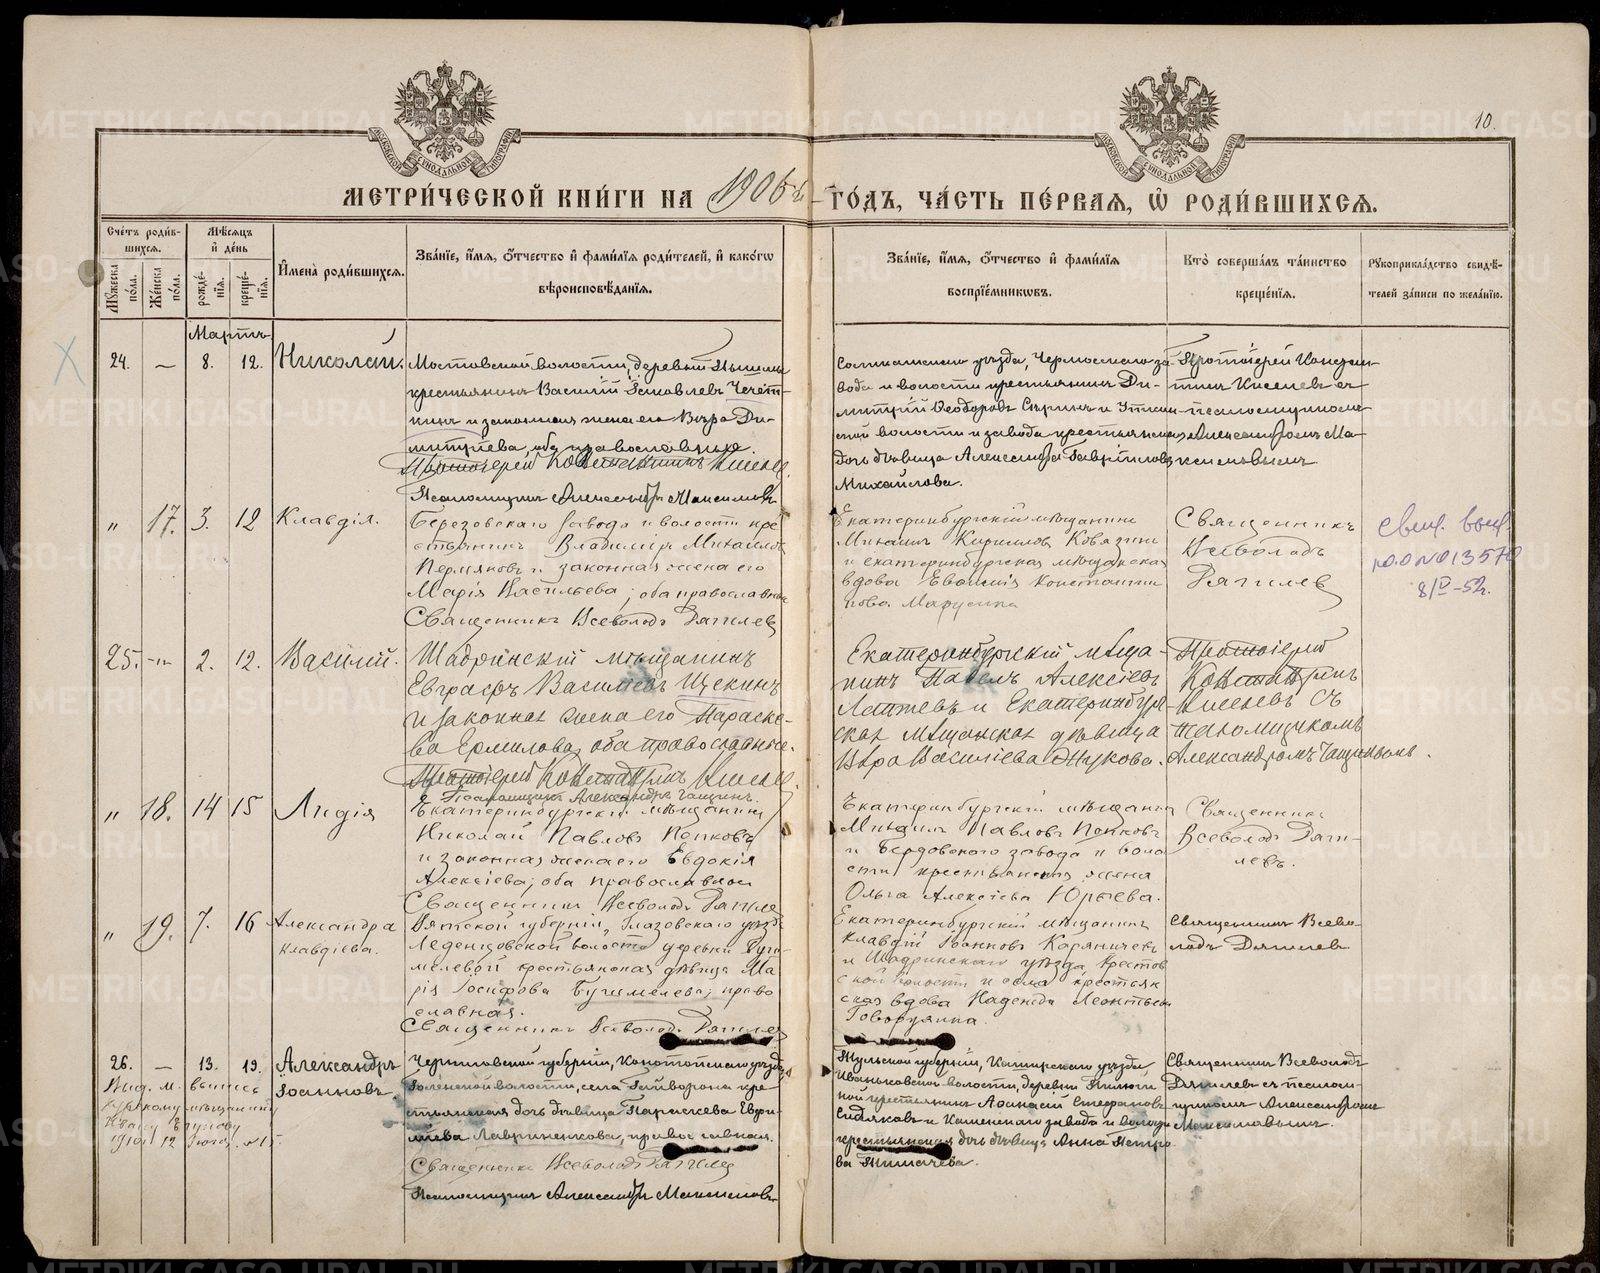 10.
МЕТРИ́ЧЕСКОЙ КНИ́ГИ НА 1906 й ГО́ДЪ, ЧА́СТЬ ПЕ́РВАЯ, Ѡ҆ РОДИ́ВШИХСЯ.
Сче́тъ роди́в-
шихся.
Мꙋ́жеска по́ла.
Же́нска по́ла.
Мѣ́сяцъ
и҆ де́нь
рожде́-
нїя.
креще́-
нїя.
И҆мена̀ роди́вшихся.
Зва́нїе, и҆́мя, ѻ҆́тчество и҆ фами́лїя роди́телей, и҆ како́гѡ
вѣроисповѣ́данїя.
Зва́нїе, и҆́мя, ѻ҆́тчество и҆ фами́лїя
воспрїе́мникѡвъ.
Кто̀ соверша́лъ та́инство
креще́нїя.
Рꙋкоприкла́дство свидѣ́-
телей за́писи по жела́нїю.
Мартъ
24. — 8. 12. Николай.
Мостовской волости, деревни
крестьянинъ Василій Іаковлевъ Чечет-
кинъ и законная жена его Вѣра Ди-
митріева, оба православные.
Протоіерей Константинъ Киселев
Псаломщикъ Александръ Максимовъ
Соликамскаго уѣзда, Чермоскаго за-
вода и волости крестьянинъ Ди-
митрій Ѳеодоровъ и Уткин-
ской волости и завода крестьянская
дочь дѣвица Александра Гаврилова
Михайлова.
Протоіерей Констан-
тинъ Киселевъ съ
псаломщикомъ
Александромъ Ма-
ксимовымъ
„ 17. 3. 12 Клавдія.
Березовскаго завода и волости кре-
стьянинъ Владимиръ Михайловъ
Пермяковъ и законная жена его
Марія Васильева; оба православные
Священникъ Всеволодъ Дягилевъ
Екатеринбургскій мѣщанинъ
Михаилъ Кириллов Ковязинъ
и екатеринбургская мѣщанская
вдова Евдокія Константи-
нова
Священникъ
Всеволодъ
Дягилев
свид. выд.
№ 013570
8/IV-52г.
25. — 2. 12. Василій.
Шадринскій мѣщанинъ
Евграфъ Васильевъ Щекинъ
и законная жена его Параске-
ва Ермилова, оба православные.
Протоіерей Константинъ Киселев
Псаломщикъ Александръ
Екатеринбургскій мѣща-
нинъ Павелъ Алексіевъ
Лаптевъ и Екатеринбург-
ская мѣщанская дѣвица
Вѣра Василіева Жукова.
Протоіерей
Константинъ
Киселевъ съ
псаломщикомъ
Александромъ
„ 18. 14 15 Лидія
Екатеринбургскій мѣщанинъ
Николай Павловъ Попковъ
и законная жена его Евдокія
Алексіева; оба православные
Священникъ Всеволодъ Дягилев
Екатеринбургскій мѣщанинъ
Михаилъ Павловъ Попковъ
и завода и воло-
сти крестьянская жена
Ольга Алексіева Юрьева.
Священникъ
Всеволодъ Дяги-
левъ.
„ 19. 7. 16 Александра
Клавдіева.
Вятской губерніи, Глазовскаго уѣзда
волости деревни
крестьянская дѣвица Ма-
рія Іосифова право-
славная.
Священникъ Всеволодъ Дягилев
Екатеринбургскій мѣщанинъ
Клавдій Іоанновъ
и Шадринскаго уѣзда, Крестов-
ской волости и села крестьян-
ская вдова Надежда Леонтьева
Говорухина.
Священникъ Всево-
лодъ Дягилевъ
26. — 13. 19. Александръ
Іоанновъ.
Черниговской губерніи, Конотопскаго уѣзда
волости, села Гайворона кре-
стьянская дочь дѣвица Параскева
Лавриненкова, православная.
Священникъ Всеволодъ Дягилев
Псаломщикъ Александръ Максимовъ
Тульской губерніи, Каширскаго уѣзда
Иваньковской волости, деревни
крестьянинъ Аѳанасій Стефановъ
и Каменскаго завода и волости
крестьянская дочь дѣвица Анна Петро-
ва
Священникъ Всеволодъ
Дягилевъ съ псалом-
щикомъ Александромъ
Максимовымъ.
Выд. м. выпись
мѣщанину
Ивану
1910 г. 12